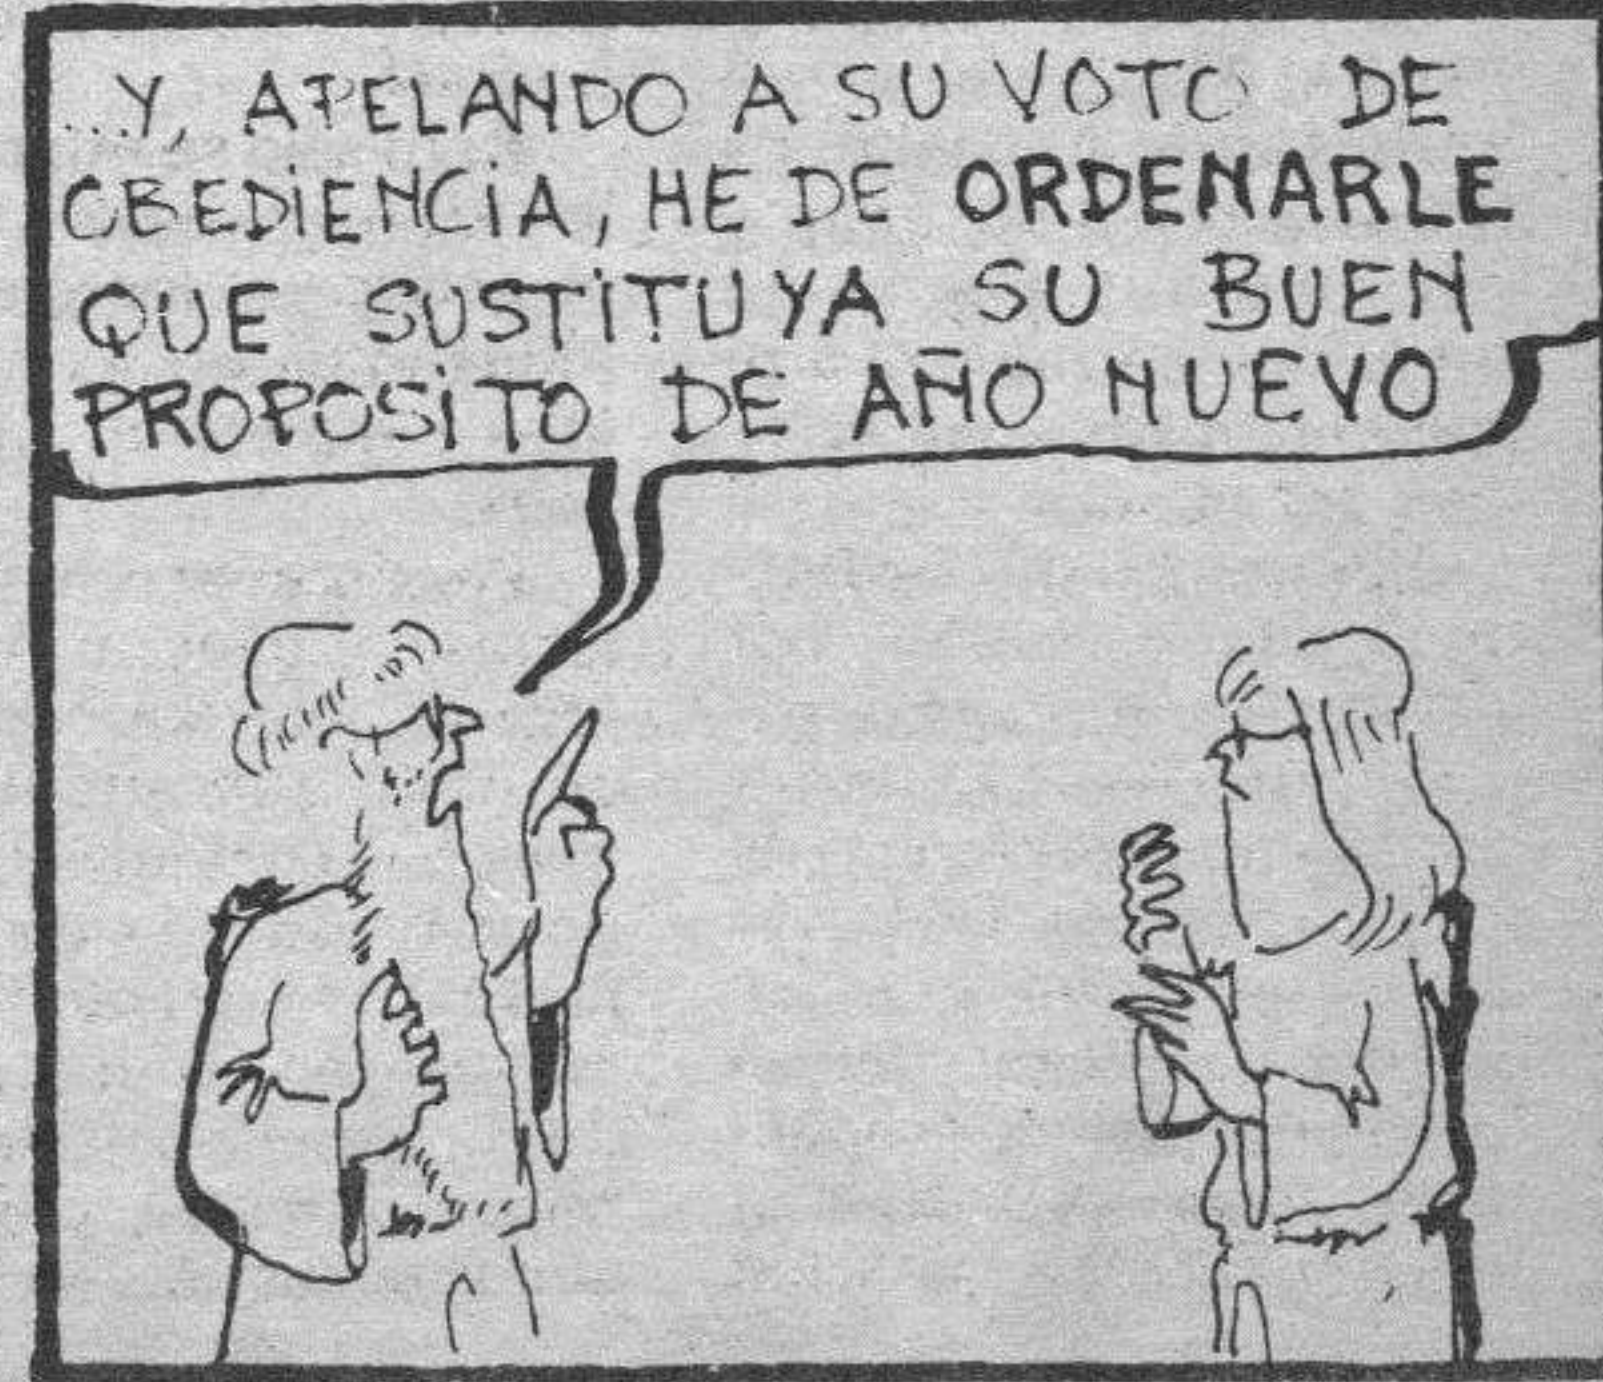 ...Y, APELANDO A SU VOTO DE
OBEDIENCIA, HE DE ORDENARLE
QUE SUSTITUYA SU BUEN
PROPOSITO DE AÑO NUEVO